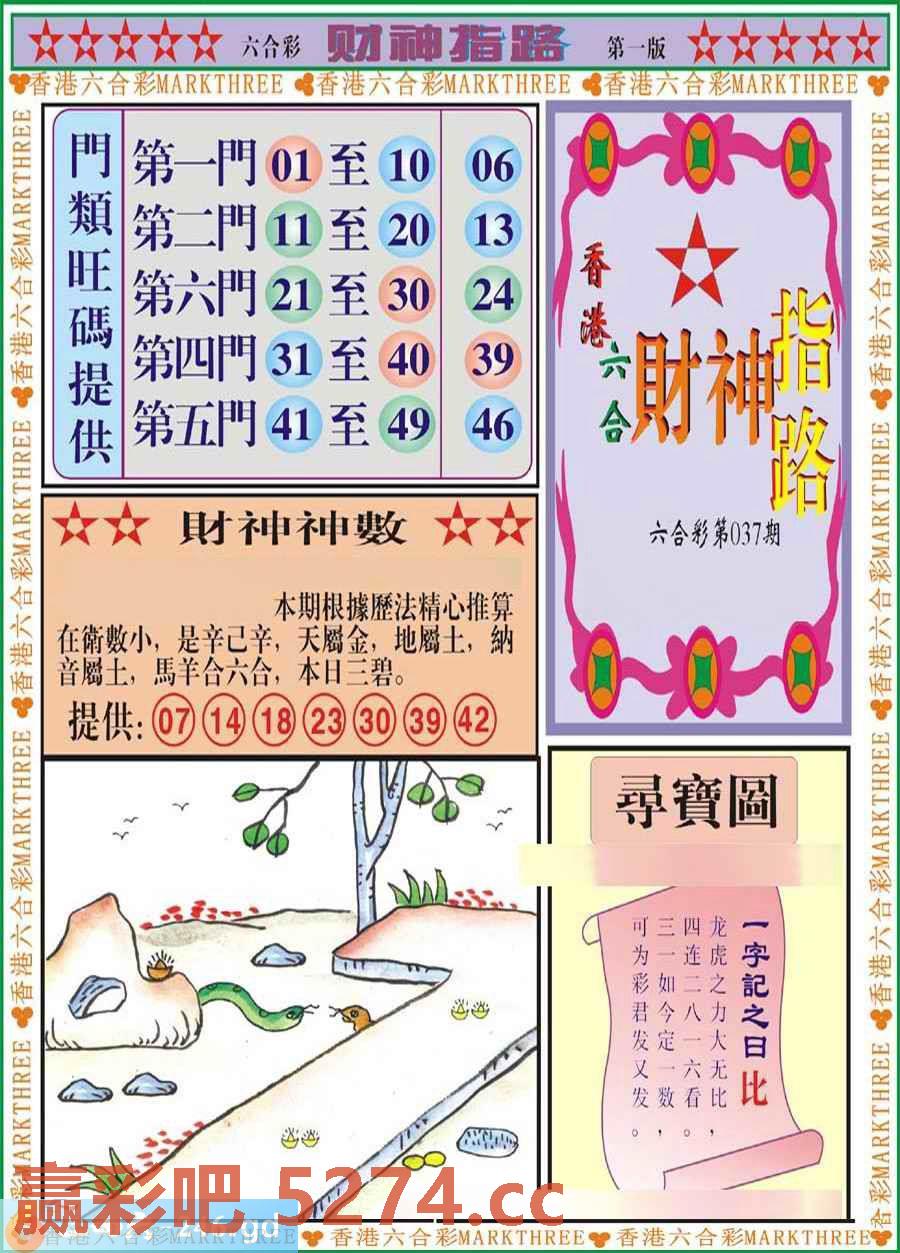 六合彩 财神指路 第一版
香港六合彩MARKTHREE 香港六合彩MARKTHREE 香港六合彩MARKTHREE
門類旺碼提供
第一門 01 至 10 06
第二門 11 至 20 13
第六門 21 至 30 24
第四門 31 至 40 39
第五門 41 至 49 46
香港六合
財神指路
六合彩第037期
財神神數
本期根據歷法精心推算
在衛數小，是辛己辛，天屬金，地屬土，納
音屬土，馬羊合六合，本日三碧。
提供: 07 14 18 23 30 39 42
尋寶圖
一字記之曰比
龙虎之力大无比，
四连二八一六看。
三一如今定一数，
可为彩君发又发。
赢彩吧 5274.cc
香港六合彩MARKTHREE 香港六合彩MARKTHREE 香港六合彩MARKTHREE